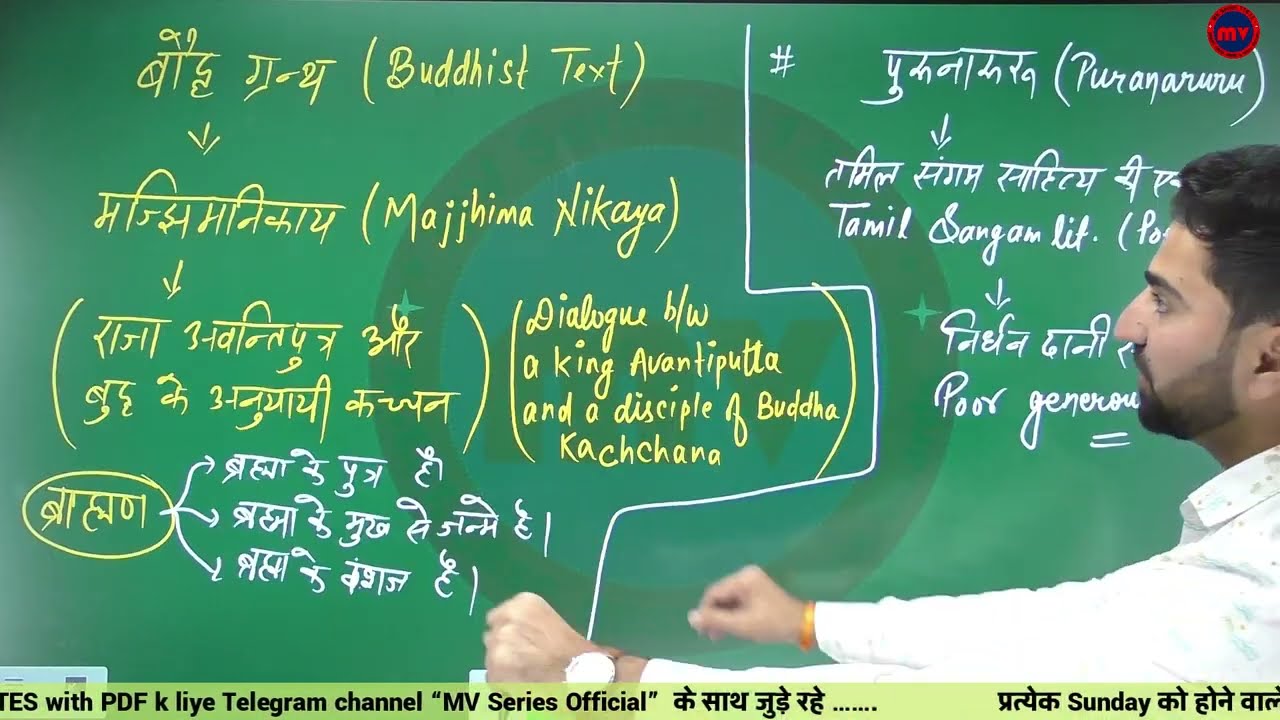 बौद्ध ग्रन्थ (Buddhist Text)
मज्झिमनिकाय (Majjhima Nikaya)
(राजा अवन्तिपुत्र और
बुद्ध के अनुयायी कच्चन)
(Dialogue b/w
a king Avantiputta
and a disciple of Buddha
Kachchana)
ब्राह्मण
ब्रह्मा के पुत्र है।
ब्रह्मा के मुख से जन्मे है।
ब्रह्मा के वंशज है।
# पुरूनारूरू (Puranaruru)
तमिल संगम साहित्य की
Tamil Sangam lit.
निर्धन दानी
Poor
MV
MV
TES with PDF k liye Telegram channel “MV Series Official” के साथ जुड़े रहे ……. प्रत्येक Sunday को होने